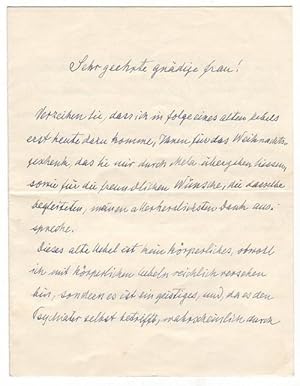 Sehr geehrte gnädige Frau!
Verzeihen Sie, dass ich in folge eines alten Uebels
erst heute dazu komme, Ihnen für das Weihnachts-
geschenk, das Sie mir durch Mela übergeben liessen,
sowie für die freundlichen Wünsche, die dasselbe
begleiteten, meinen allerherzlichsten Dank aus-
spreche.
Dieses alte Uebel ist kein körperliches, obwohl
ich mit körperlichen Uebeln reichlich versehen
bin, sondern es ist ein geistiges, und, da es den
Psychiater selbst betrifft, wahrscheinlich durch